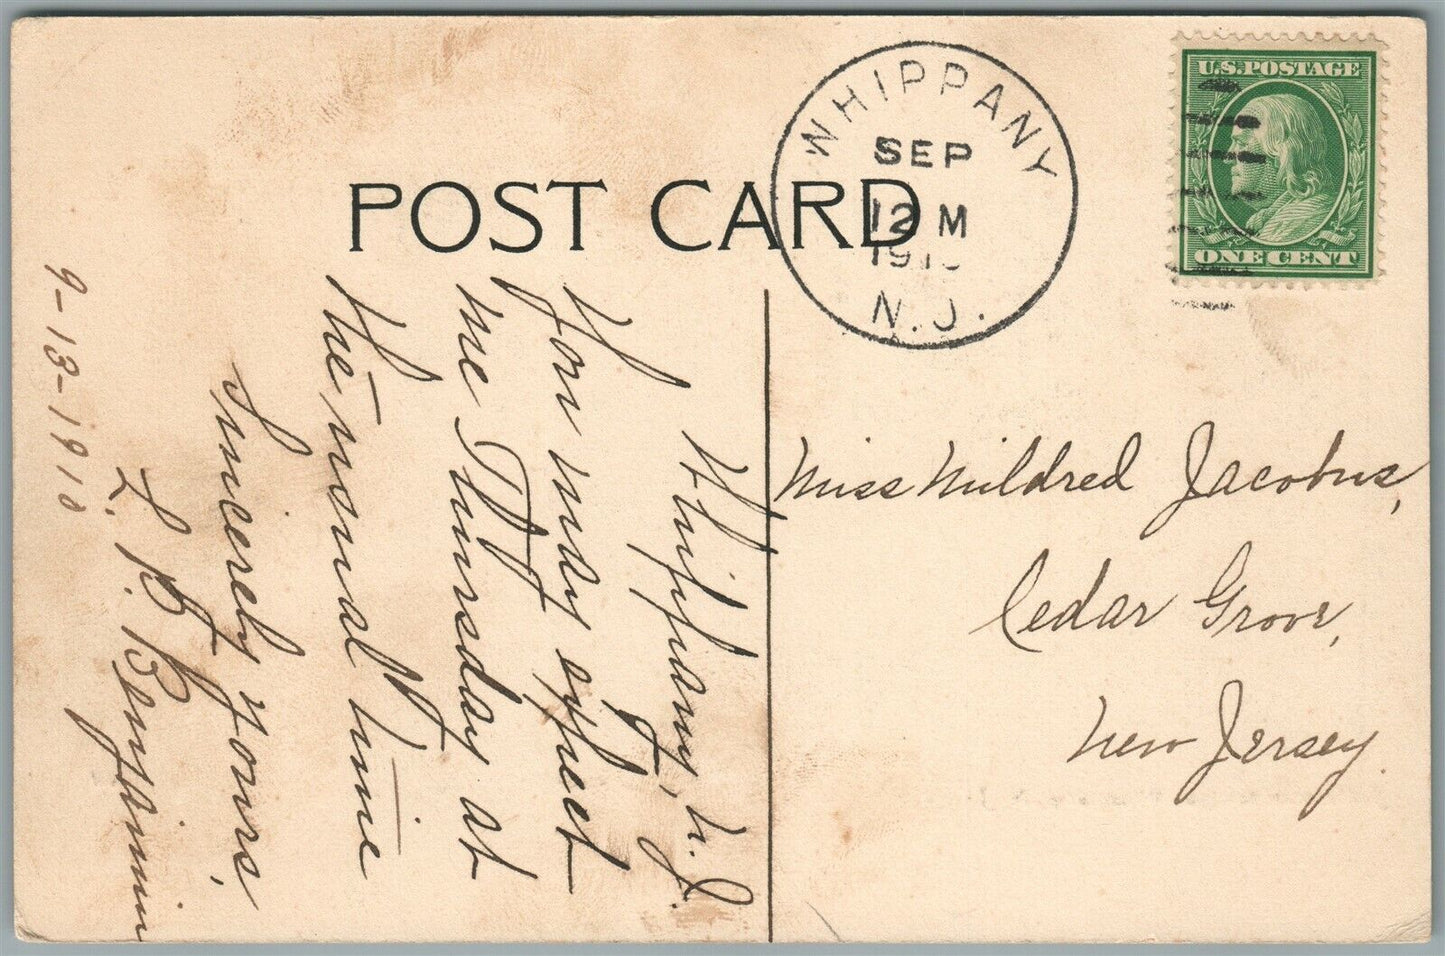 POST CARD
WHIPPANY
SEP
12 M
N.J.
U.S. POSTAGE
ONE CENT
Whippany, N. J.
You may expect
me Thursday at
the usual time
Sincerely yours,
L. B. Benjamin
9-13-1910
Miss Mildred Jacobus,
Cedar Grove,
New Jersey.